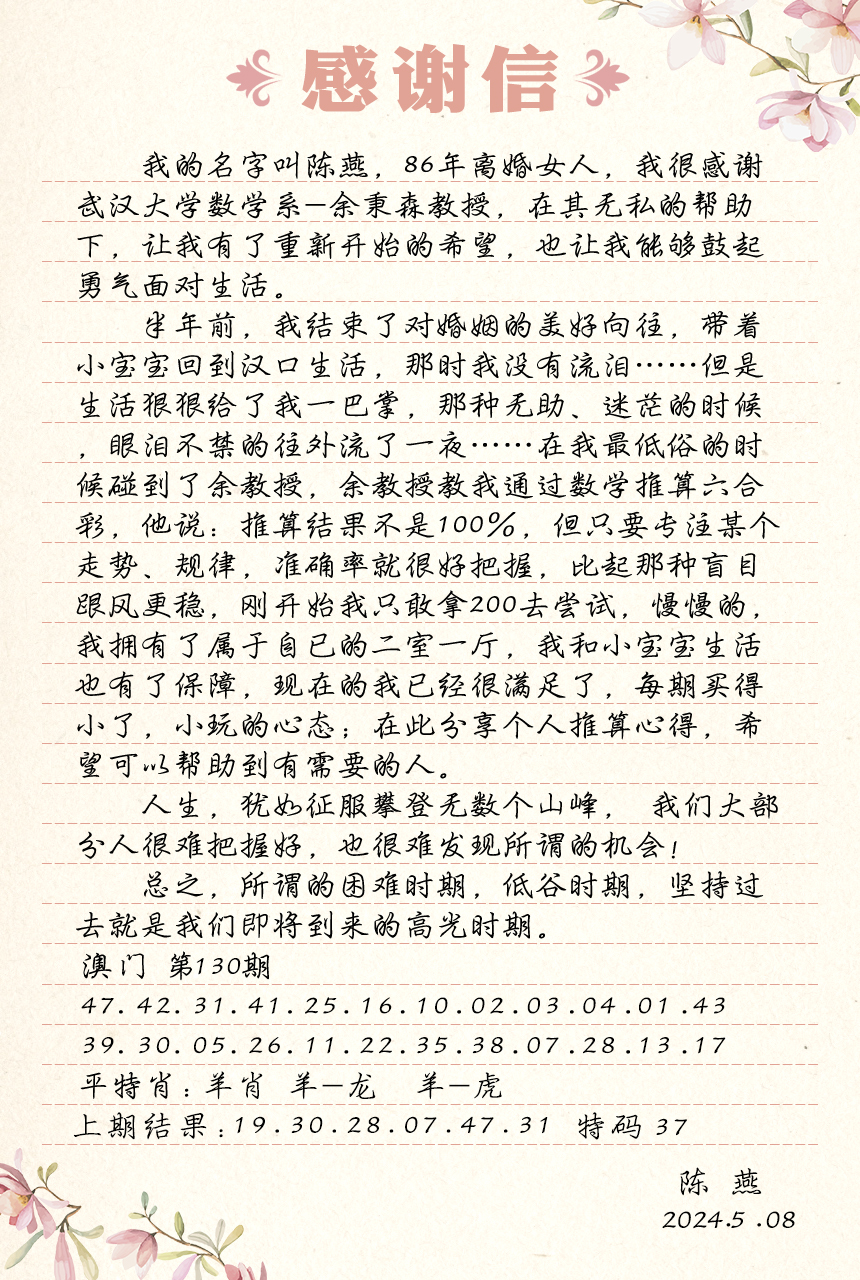 感谢信
我的名字叫陈燕，86年离婚女人，我很感谢
武汉大学数学系—余秉森教授，在其无私的帮助
下，让我有了重新开始的希望，也让我能够鼓起
勇气面对生活。
半年前，我结束了对婚姻的美好向往，带着
小宝宝回到汉口生活，那时我没有流泪……但是
生活狠狠给了我一巴掌，那种无助、迷茫的时候
，眼泪不禁的往外流了一夜……在我最低俗的时
候碰到了余教授，余教授教我通过数学推算六合
彩，他说：推算结果不是100%，但只要专注某个
走势、规律，准确率就很好把握，比起那种盲目
跟风更稳，刚开始我只敢拿200去尝试，慢慢的，
我拥有了属于自已的二室一厅，我和小宝宝生活
也有了保障，现在的我已经很满足了，每期买得
小了，小玩的心态；在此分享个人推算心得，希
望可以帮助到有需要的人。
人生，犹如征服攀登无数个山峰， 我们大部
分人很难把握好，也很难发现所谓的机会！
总之，所谓的困难时期，低谷时期，坚持过
去就是我们即将到来的高光时期。
澳门 第130期
47.42.31.41.25.16.10.02.03.04.01.43
39.30.05.26.11.22.35.38.07.28.13.17
平特肖：羊肖 羊—龙 羊—虎
上期结果：19.30.28.07.47.31 特码 37
陈 燕
2024.5.08